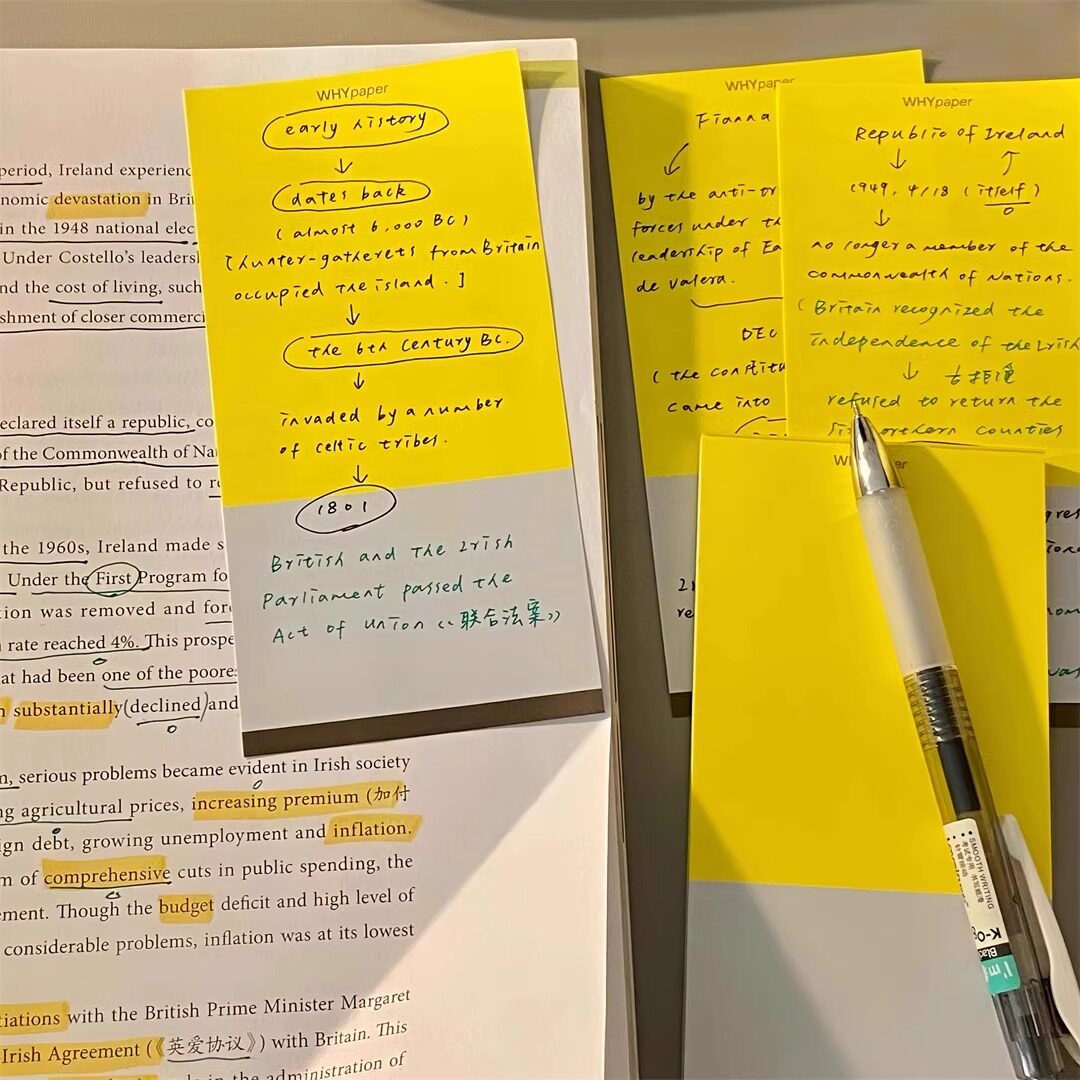 period, Ireland experienc
nomic devastation in Bri
in the 1948 national elec
Under Costello's leaders
nd the cost of living, such
shment of closer commerci
eclared itself a republic, co
of the Commonwealth of Na
Republic, but refused to r
the 1960s, Ireland made s
Under the First Program fo
tion was removed and for
rate reached 4%. This prospe
at had been one of the poore
substantially (declined) and
n, serious problems became evident in Irish society
ng agricultural prices, increasing premium (加付
ign debt, growing unemployment and inflation.
m of comprehensive cuts in public spending, the
ement. Though the budget deficit and high level of
considerable problems, inflation was at its lowest
tiations with the British Prime Minister Margaret
-Irish Agreement (《英爱协议》) with Britain. This
in the administration of
WHYpaper
early history
↓
dates back
(almost 6,000 BC)
[hunter-gatherets from Britain
occupied the island.]
↓
the 6th century BC.
↓
invaded by a number
of celtic tribes.
↓
1801
British and The Irish
Parliament passed the
Act of union 《联合法案》
WHYpaper
Fianna
↙
by the anti-tr
forces under th
leadership of Ea
de valera.
DEC
(the constitu
came into
WHYpaper
Republic of Ireland
↓ ↑
1949, 4/18 (itself)
↓
no longer a member of the
commonwealth of Nations.
(Britain recognized the
independence of the Irish
↓
refused to return the
orthern counties
WHY er
SMOOTH WRITING
K-0
Blac
I'm